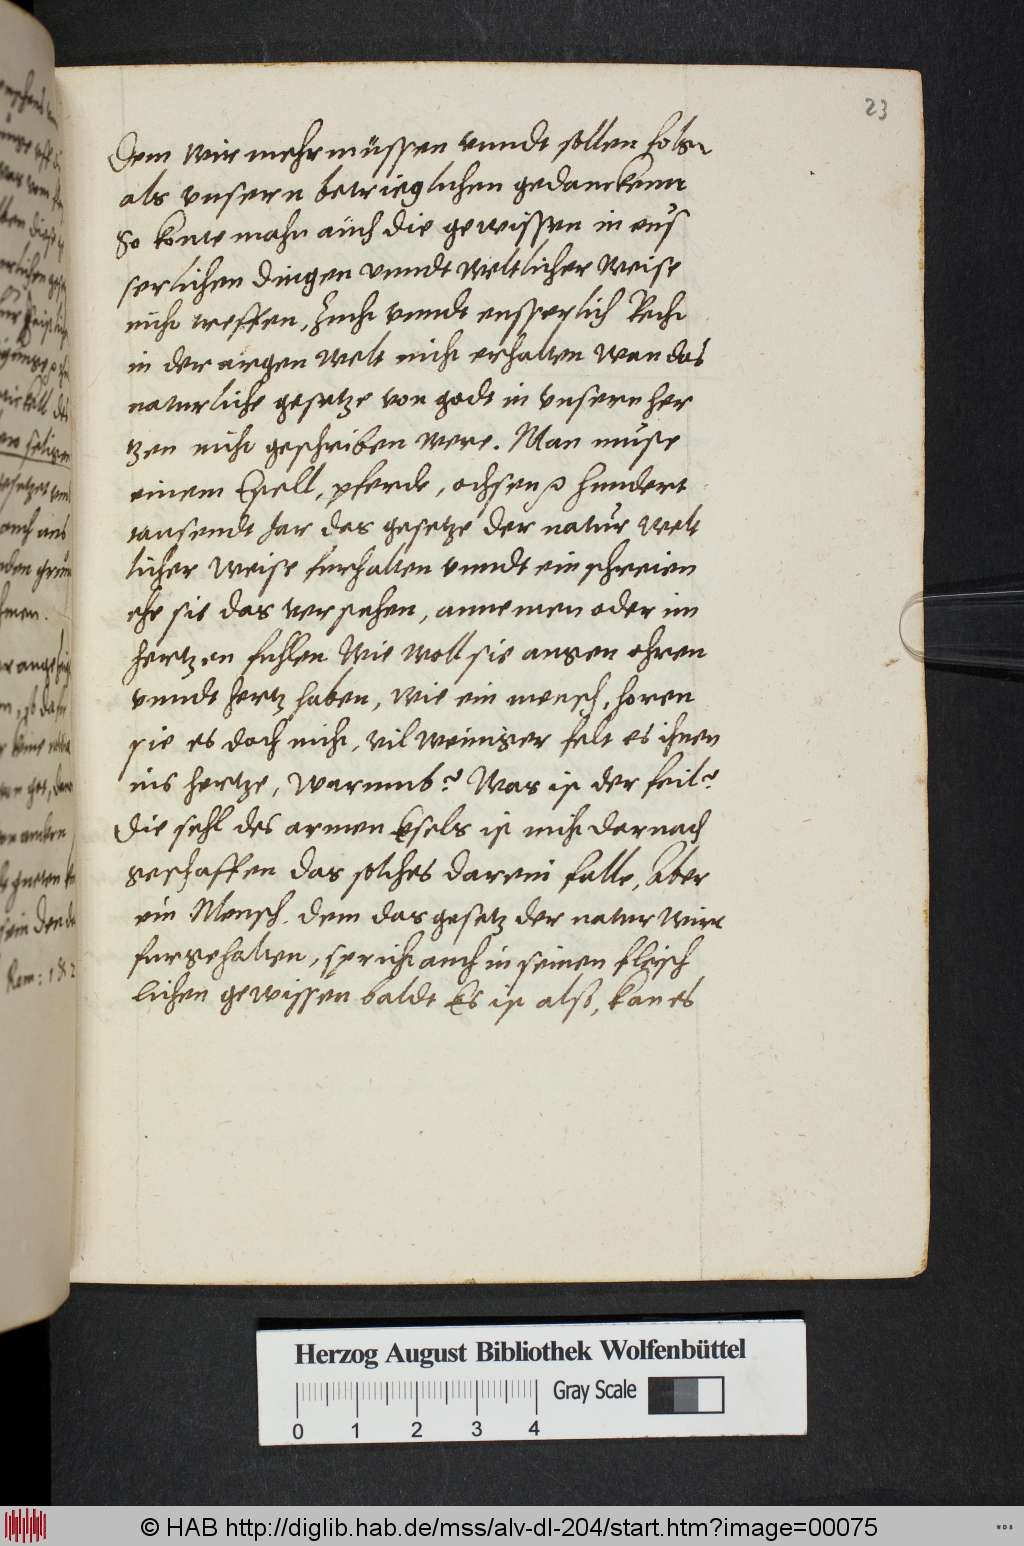 23
Dem wir mehr müssen vnndt sollen folgen
als vnsern betrieglichen gedanckenn
So konte mahn auch die gewissen in eus
serlichen dingen vnndt weltlicher weise
nicht treffen, Zucht vnndt eusserlich Recht
in der argen welt nicht erhalten wan das
naturliche gesetze von godt in vnsern her
tzen nicht geschriben were. Man muse
einem Esell, pferde, ochsen hundert
tausendt Jar das gesetze der natur welt
licher weise furhalten vnndt einschreien
ehe sie das versthen, annemen oder im
hertzen fuhlen Wie woll sie augen ohren
vnndt hertz haben, wie ein mensch, horen
sie es doch nicht, vil weiniger felt es ihnen
ins hertze, warumb? Was ist der feil?
Die sehl des armen Esels ist nicht darnach
geschaffen das solches darein falle, Aber
ein Mensch. dem das gesetz der natur wirt
furgehalten, spricht auch in seinen fleisch
lichen gewissen baldt Es ist alß, kan es
Rom: 1 & 2
Herzog August Bibliothek Wolfenbüttel
Gray Scale
0 1 2 3 4
© HAB http://diglib.hab.de/mss/alv-dl-204/start.htm?image=00075